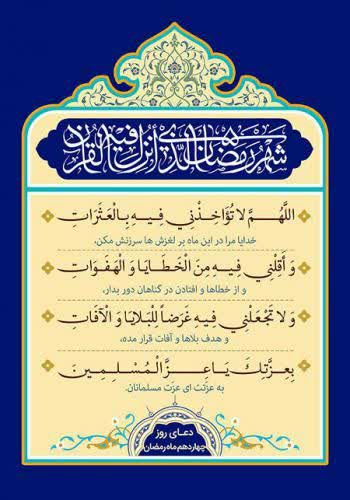 شَهْرُ رَمَضَانَ الَّذِي أُنْزِلَ فِيهِ الْقُرْآنُ
اللَّهُمَّ لَا تُؤَاخِذْنِي فِيهِ بِالْعَثَرَاتِ
خدایا مرا در این ماه بر لغزش ها سرزنش مکن،
وَ أَقِلْنِي فِيهِ مِنَ الْخَطَايَا وَ الْهَفَوَاتِ
و از خطاها و افتادن در گناهان دور بدار،
وَ لَا تَجْعَلْنِي فِيهِ غَرَضاً لِلْبَلَايَا وَ الْآفَاتِ
و هدف بلاها و آفات قرار مده،
بِعِزَّتِكَ يَا عِزَّ الْمُسْلِمِينَ
به عزّتت ای عزّت مسلمانان.
دعای روز
چهاردهم ماه رمضان